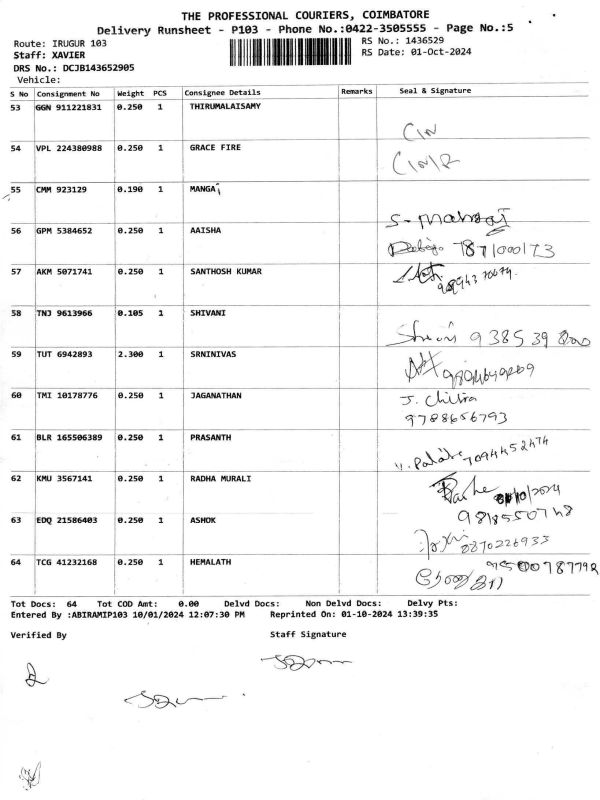 THE PROFESSIONAL COURIERS, COIMBATORE
Delivery Runsheet - P103 - Phone No.:0422-3505555 - Page No.:5
Route: IRUGUR 103 RS No.: 1436529
Staff: XAVIER RS Date: 01-Oct-2024
DRS No.: DCJB143652905
Vehicle:
S No Consignment No Weight PCS Consignee Details Remarks Seal & Signature
53 GGN 911221831 0.250 1 THIRUMALAISAMY
54 VPL 224380988 0.250 1 GRACE FIRE
55 CMM 923129 0.190 1 MANGAI
S. Mangai
56 GPM 5384652 0.250 1 AAISHA
57 AKM 5071741 0.250 1 SANTHOSH KUMAR
58 TNJ 9613966 0.105 1 SHIVANI
59 TUT 6942893 2.300 1 SRNINIVAS
60 TMI 10178776 0.250 1 JAGANATHAN J. Chitra
9788656793
61 BLR 165506389 0.250 1 PRASANTH
62 KMU 3567141 0.250 1 RADHA MURALI
9818550748
63 EDQ 21586403 0.250 1 ASHOK
64 TCG 41232168 0.250 1 HEMALATH
Tot Docs: 64 Tot COD Amt: 0.00 Delvd Docs: Non Delvd Docs: Delvy Pts:
Entered By :ABIRAMIP103 10/01/2024 12:07:30 PM Reprinted On: 01-10-2024 13:39:35
Verified By Staff Signature